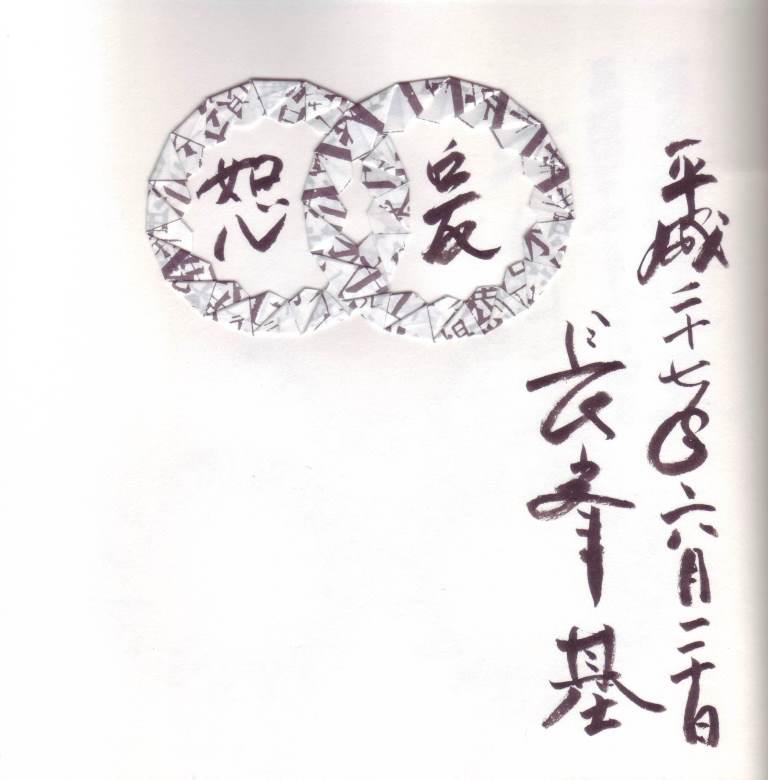 平成二十七年六月二十日
長峯基
恕